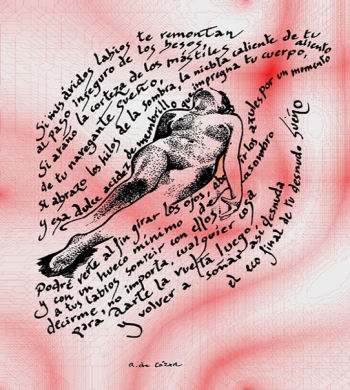 Si mis ávidos labios te remontan
al pazo inseguro de los besos,
Si araño la corteza de los mástiles
de tu navegante sueño,
Si abrazo los hilos de la sombra, la niebla caliente de tu aliento
y esa dulce acidez de membrillo que impregna tu cuerpo,
Podré verte al fin girar los ojos, azules por un momento
y con un hueco mínimo de asombro
a tus labios sonreir con ellos
decirme, no importa, cualquier
para darte la vuelta luego
y volver a soñar así desnuda
el eco final de tu desnudo sueño
R. de Cózar